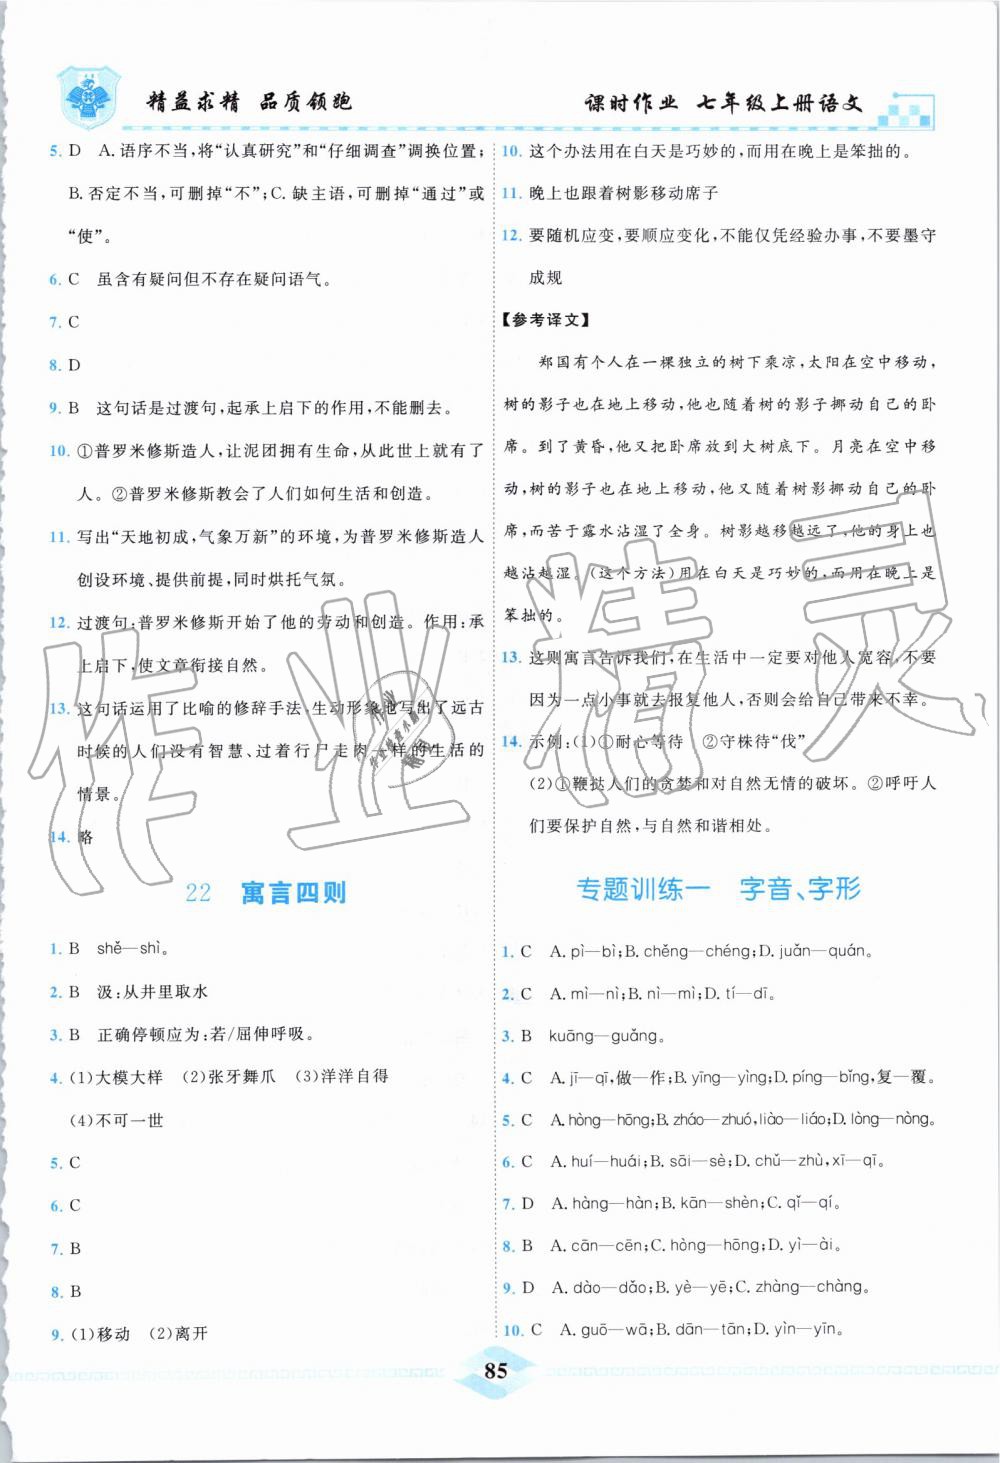 精益求精 品质领跑
课时作业 七年级上册语文
5. D A. 语序不当,将“认真研究”和“仔细调查”调换位置;
B. 否定不当,可删掉“不”;C. 缺主语,可删掉“通过”或
“使”。
6. C 虽含有疑问但不存在疑问语气。
7. C
8. D
9. B 这句话是过渡句,起承上启下的作用,不能删去。
10. ①普罗米修斯造人,让泥团拥有生命,从此世上就有了
人。②普罗米修斯教会了人们如何生活和创造。
11. 写出“天地初成,气象万新”的环境,为普罗米修斯造人
创设环境、提供前提,同时烘托气氛。
12. 过渡句:普罗米修斯开始了他的劳动和创造。作用:承
上启下,使文章衔接自然。
13. 这句话运用了比喻的修辞手法,生动形象地写出了远古
时候的人们没有智慧、过着行尸走肉一样的生活的
情景。
14. 略
22 寓言四则
1. B shě—shì。
2. B 汲:从井里取水
3. B 正确停顿应为:若/屈伸呼吸。
4. (1)大模大样 (2)张牙舞爪 (3)洋洋自得
(4)不可一世
5. C
6. C
7. B
8. B
9. (1)移动 (2)离开
10. 这个办法用在白天是巧妙的,而用在晚上是笨拙的。
11. 晚上也跟着树影移动席子
12. 要随机应变,要顺应变化,不能仅凭经验办事,不要墨守
成规
【参考译文】
郑国有个人在一棵独立的树下乘凉,太阳在空中移动,
树的影子也在地上移动,他也随着树的影子挪动自己的卧
席。到了黄昏,他又把卧席放到大树底下。月亮在空中移
动,树的影子也在地上移动,他又随着树的影子挪动自己的卧
席,而苦于露水沾湿了全身。树影越移越远了,他的身上也
越沾越湿。(这个方法)用在白天是巧妙的,而用在晚上是
笨拙的。
13. 这则寓言告诉我们,在生活中一定要对他人宽容,不要
因为一点小事就去报复他人,否则会给自己带来不幸。
14. 示例:(1)①耐心等待 ②守株待“伐”
(2)①鞭挞人们的贪婪和对自然无情的破坏。②呼吁人
们要保护自然,与自然和谐相处。
专题训练一 字音、字形
1. C A. pì—bì;B. chěng—chéng;D. juǎn—quán。
2. C A. mì—nì;B. nì—mì;D. tí—dī。
3. B kuāng—guǎng。
4. C A. jī—qī,做—作;B. yīng—yìng;D. píng—bǐng,复—覆。
5. C A. hòng—hōng;B. zháo—zhuó,liào—liáo;D. lòng—nòng。
6. C A. huí—huái;B. sāi—sè;D. chǔ—zhù,xī—qī。
7. D A. hàng—hàn;B. kān—shèn;C. qǐ—qí。
8. B A. cān—cēn;C. hòng—hōng;D. yì—ài。
9. D A. dào—dǎo;B. yè—yē;C. zhàng—chàng。
10. C A. guō—wā;B. dān—tān;D. yìn—yīn。
85
作业精灵